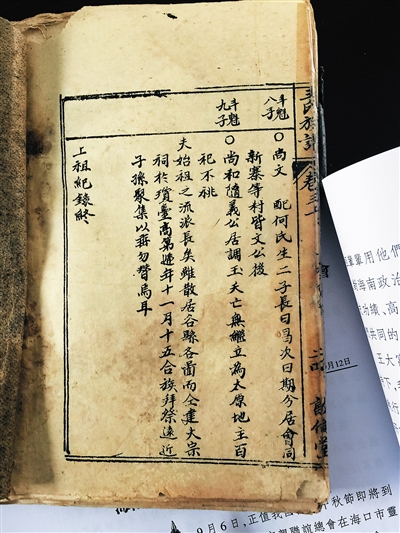 王氏族譜 卷三
斗魁八子
○尚文 配何氏生二子長曰昌次曰期分居會同
新寨等村皆文公後
斗魁九子
○尚和隨義公居調玉夭亡無繼立為太原地主百
祀不祧
夫始祖之流派長矣雖散居各縣各啚而仝建大宗
祠於瓊臺高第逓年十一月十五合族拜祭遠近
子孫聚集以毋勿替焉耳
上祖紀錄終
用他們
海南政治
功績、高
共同的
王大富
月12日
9月6日,正值我 秋節即將到
聯誼總會在海口市靈